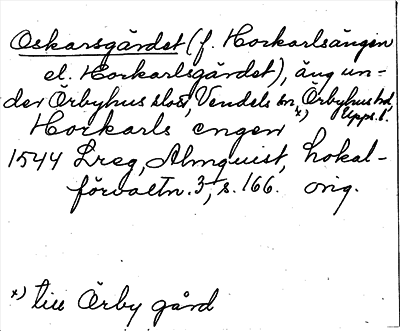 Oskarsgärdet (f. Horkarlsängen
el. Horkarlsgärdet), äng un-
der Örbyhus slott, Vendels sn, Örbyhus hd,
Upps. l.
Horkarls engen *)
1544 Lreg, Almquist, Lokal-
förvaltn. 3, s. 166. orig.
*) till Örby gård